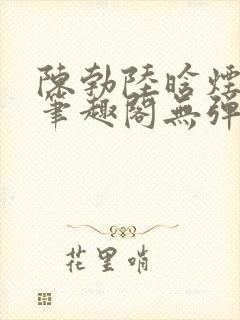 陳勃陸晗煙
筆趣閣無彈
花里哨